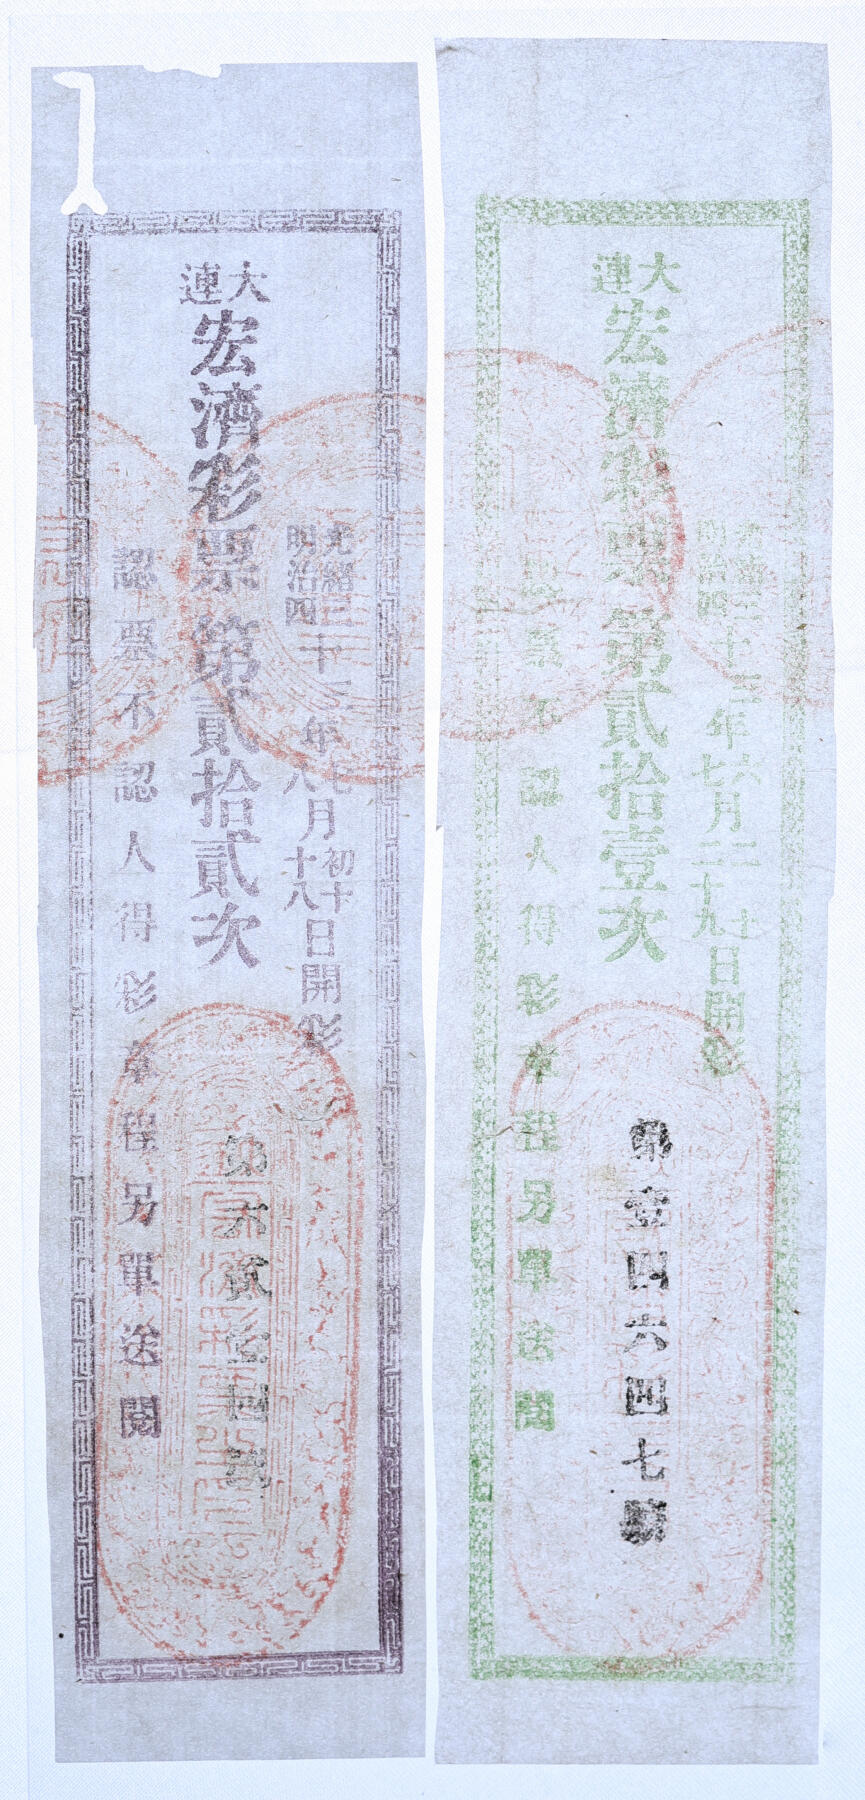 大連
宏濟彩票第貳拾壹次
光緒三
明治四
十三年
六
七
月
二十
二十九
日開彩
認票不認人得彩章程另單送閱
第壹四六四七號
大連
宏濟彩票第貳拾貳次
光緒三
明治四
十三年
七
八
月
初十
十八
日開彩
認票不認人得彩章程另單送閱
第六貳壹四號